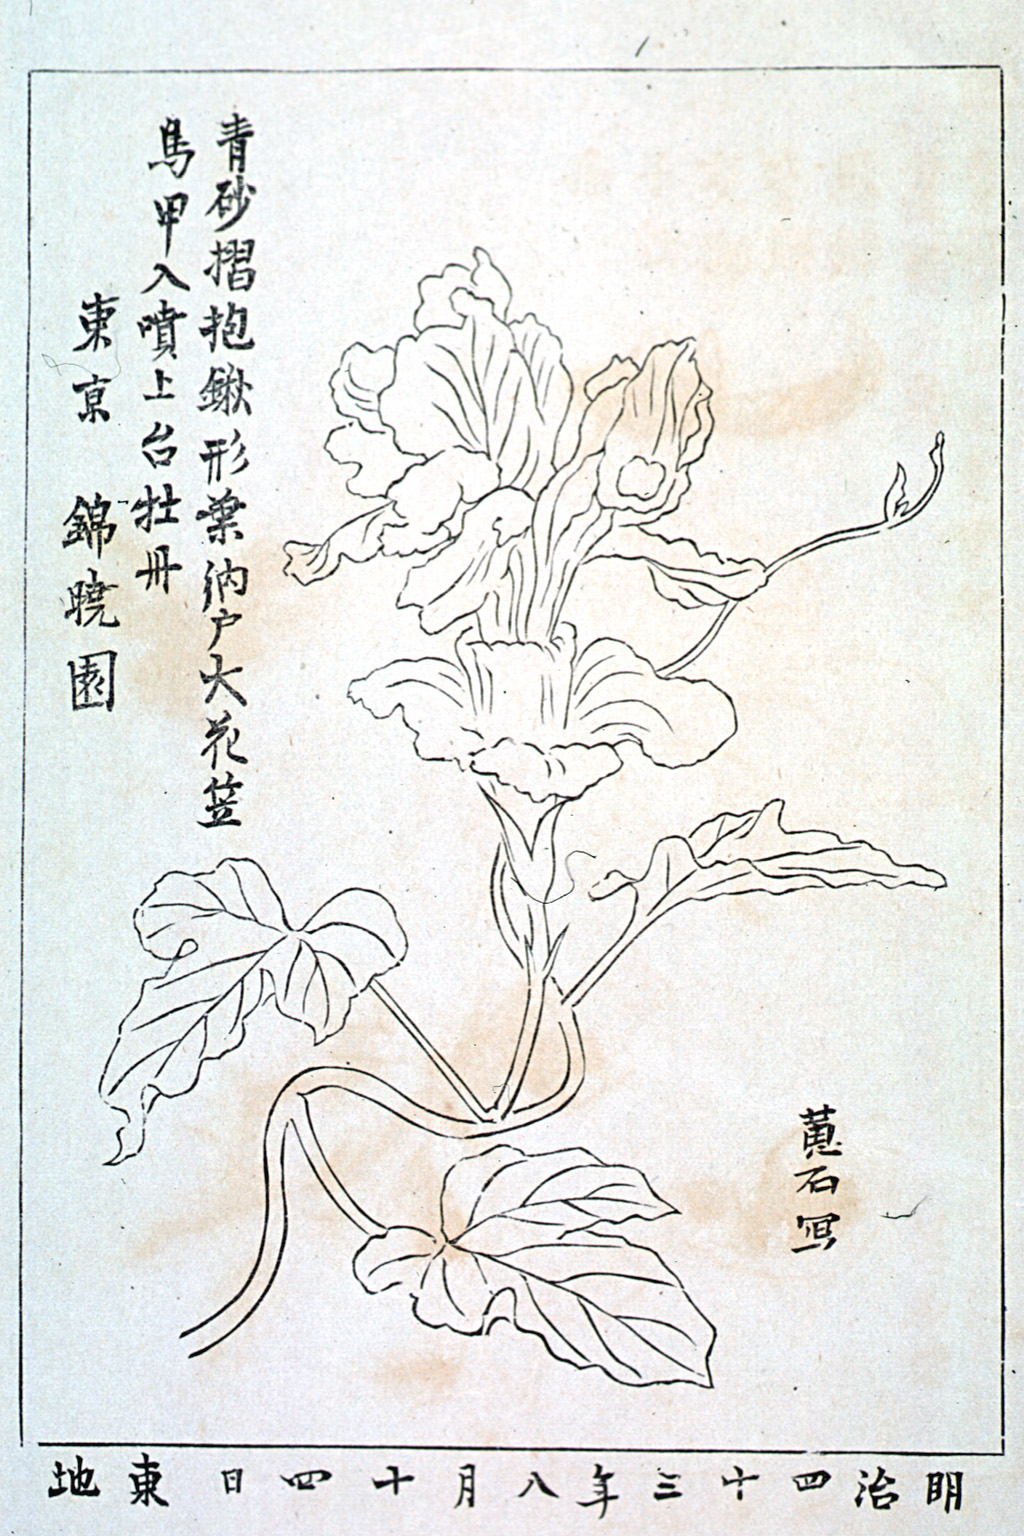 青砂摺抱鍬形葉納戸大花笠
馬甲入噴上台牡丹
東京 錦暁園
蕙石冩
明治四十三年八月十四日 東地